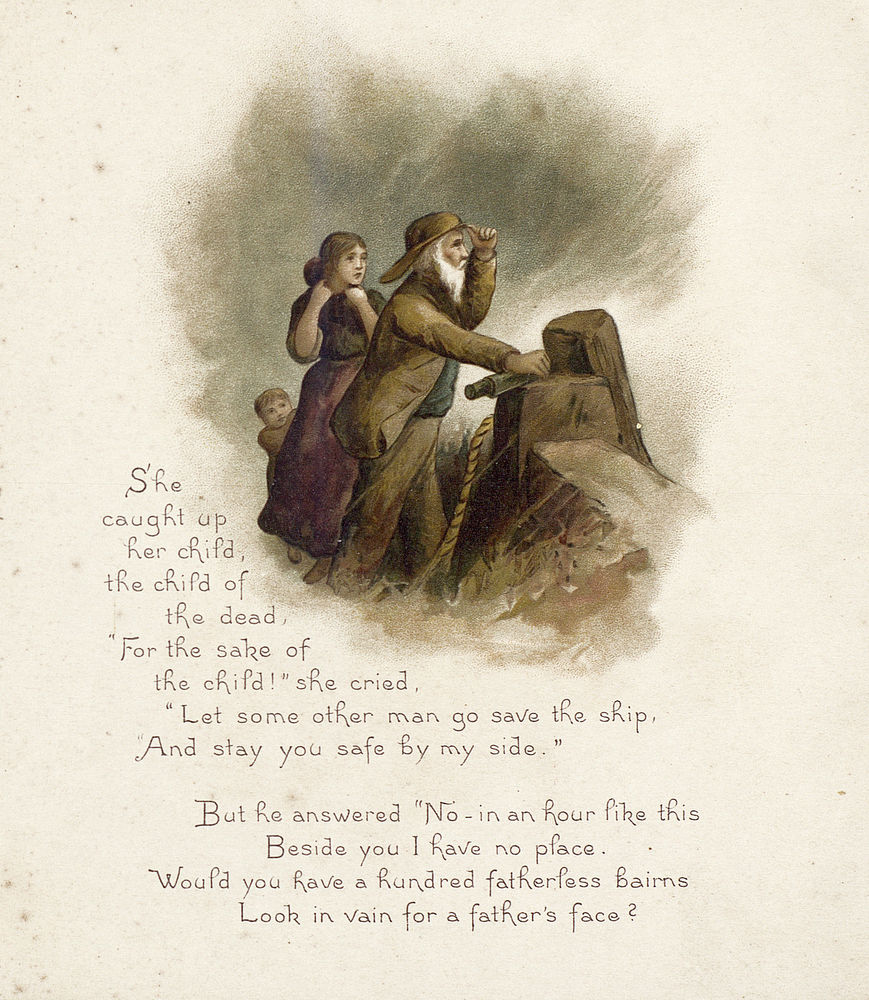 She
caught up
her child,
the child of
the dead,
"For the sake of
the child!" she cried,
"Let some other man go save the ship,
"And stay you safe by my side."
But he answered "No - in an hour like this
Beside you I have no place.
Would you have a hundred fatherless bairns
Look in vain for a father's face?